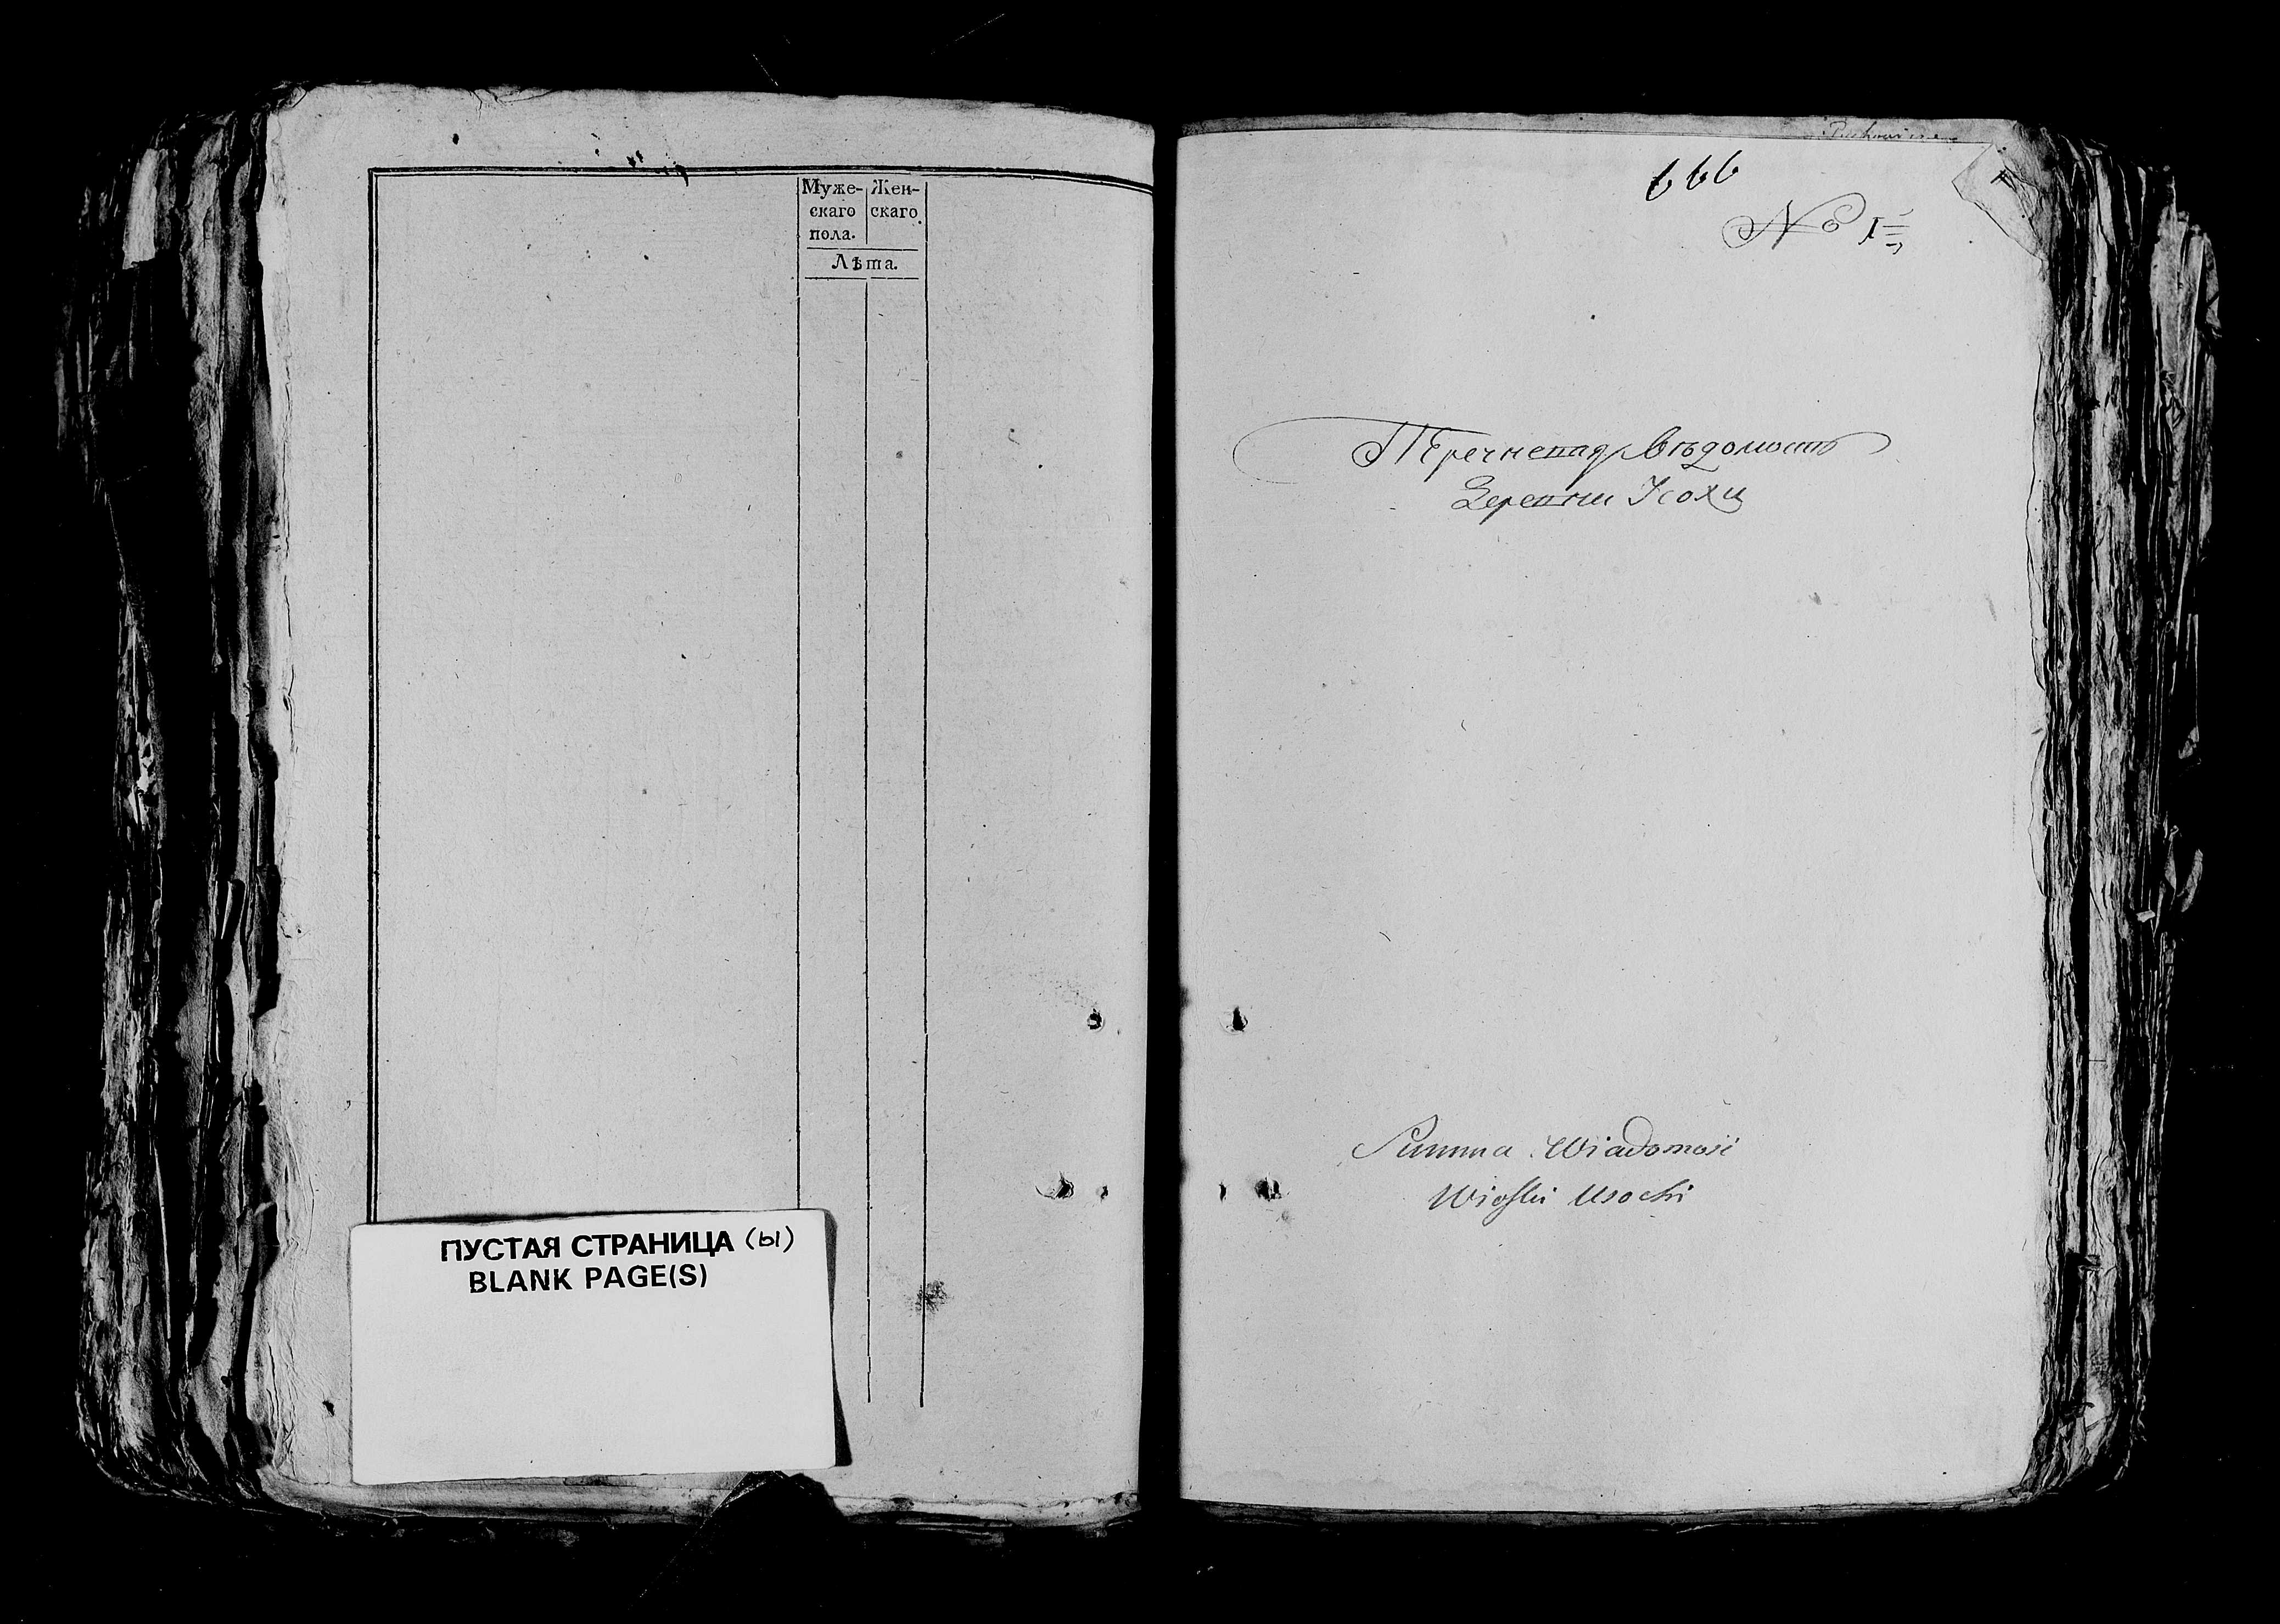 Муже- Жен-
скаго скаго
пола.
Лѣта.
ПУСТАЯ СТРАНИЦА (ы)
BLANK PAGE(S)
666
No 1
Перечневая вѣдомость
Деревни Усохи
Summa Wiadomosci
Wioski Usochi